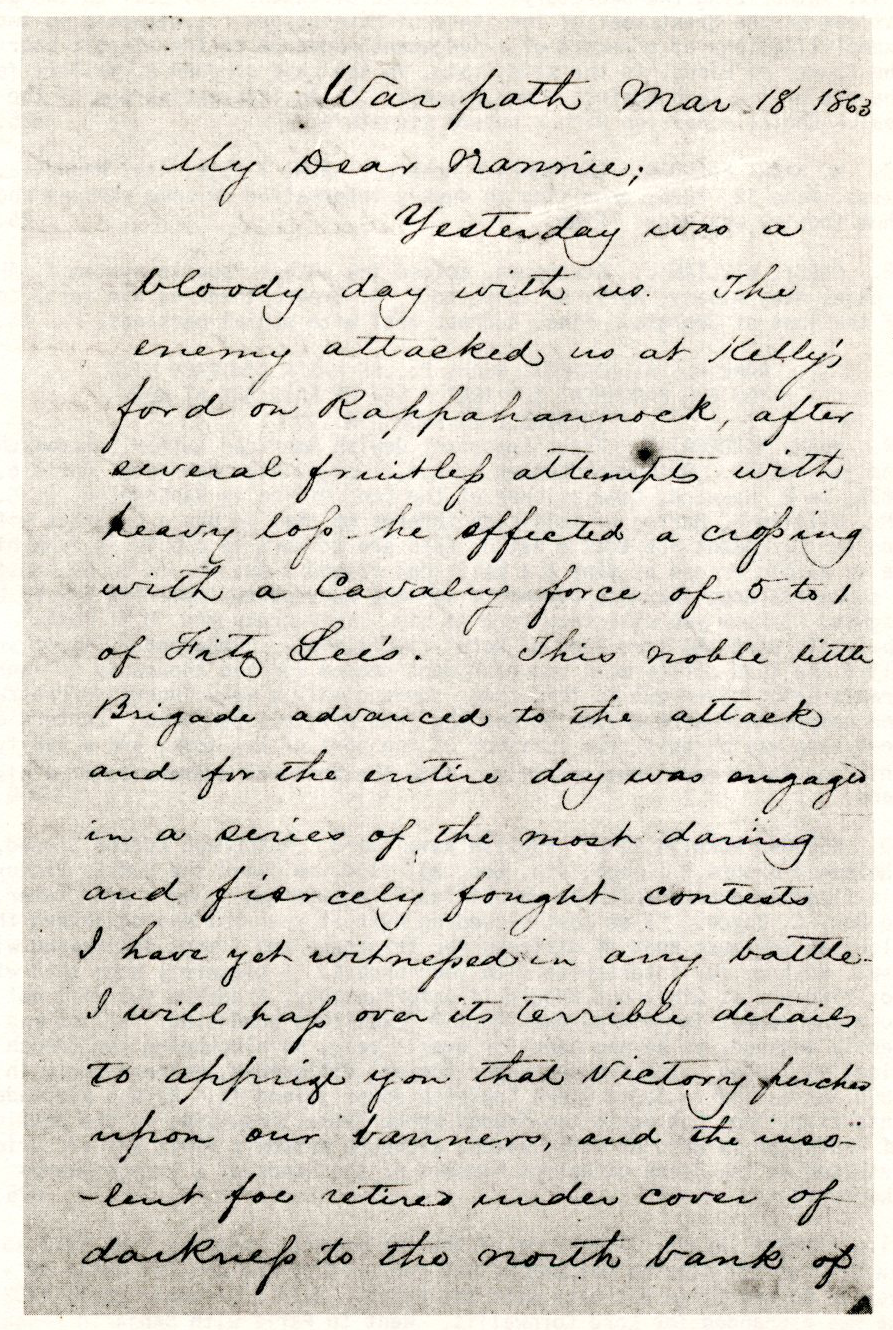 War path Mar 18 1863
My Dear Nannie;
Yesterday was a
bloody day with us. The
enemy attacked us at Kelly's
ford on Rappahannock, after
several fruitless attempts with
heavy loss he effected a crossing
with a Cavalry force of 5 to 1
of Fitz Lee's. This noble little
Brigade advanced to the attack
and for the entire day was engaged
in a series of the most daring
and fiercely fought contests
I have yet witnessed in any battle.
I will pass over its terrible details
to apprize you that Victory perches
upon our banners, and the inso-
-lent foe retired under cover of
darkness to the north bank of